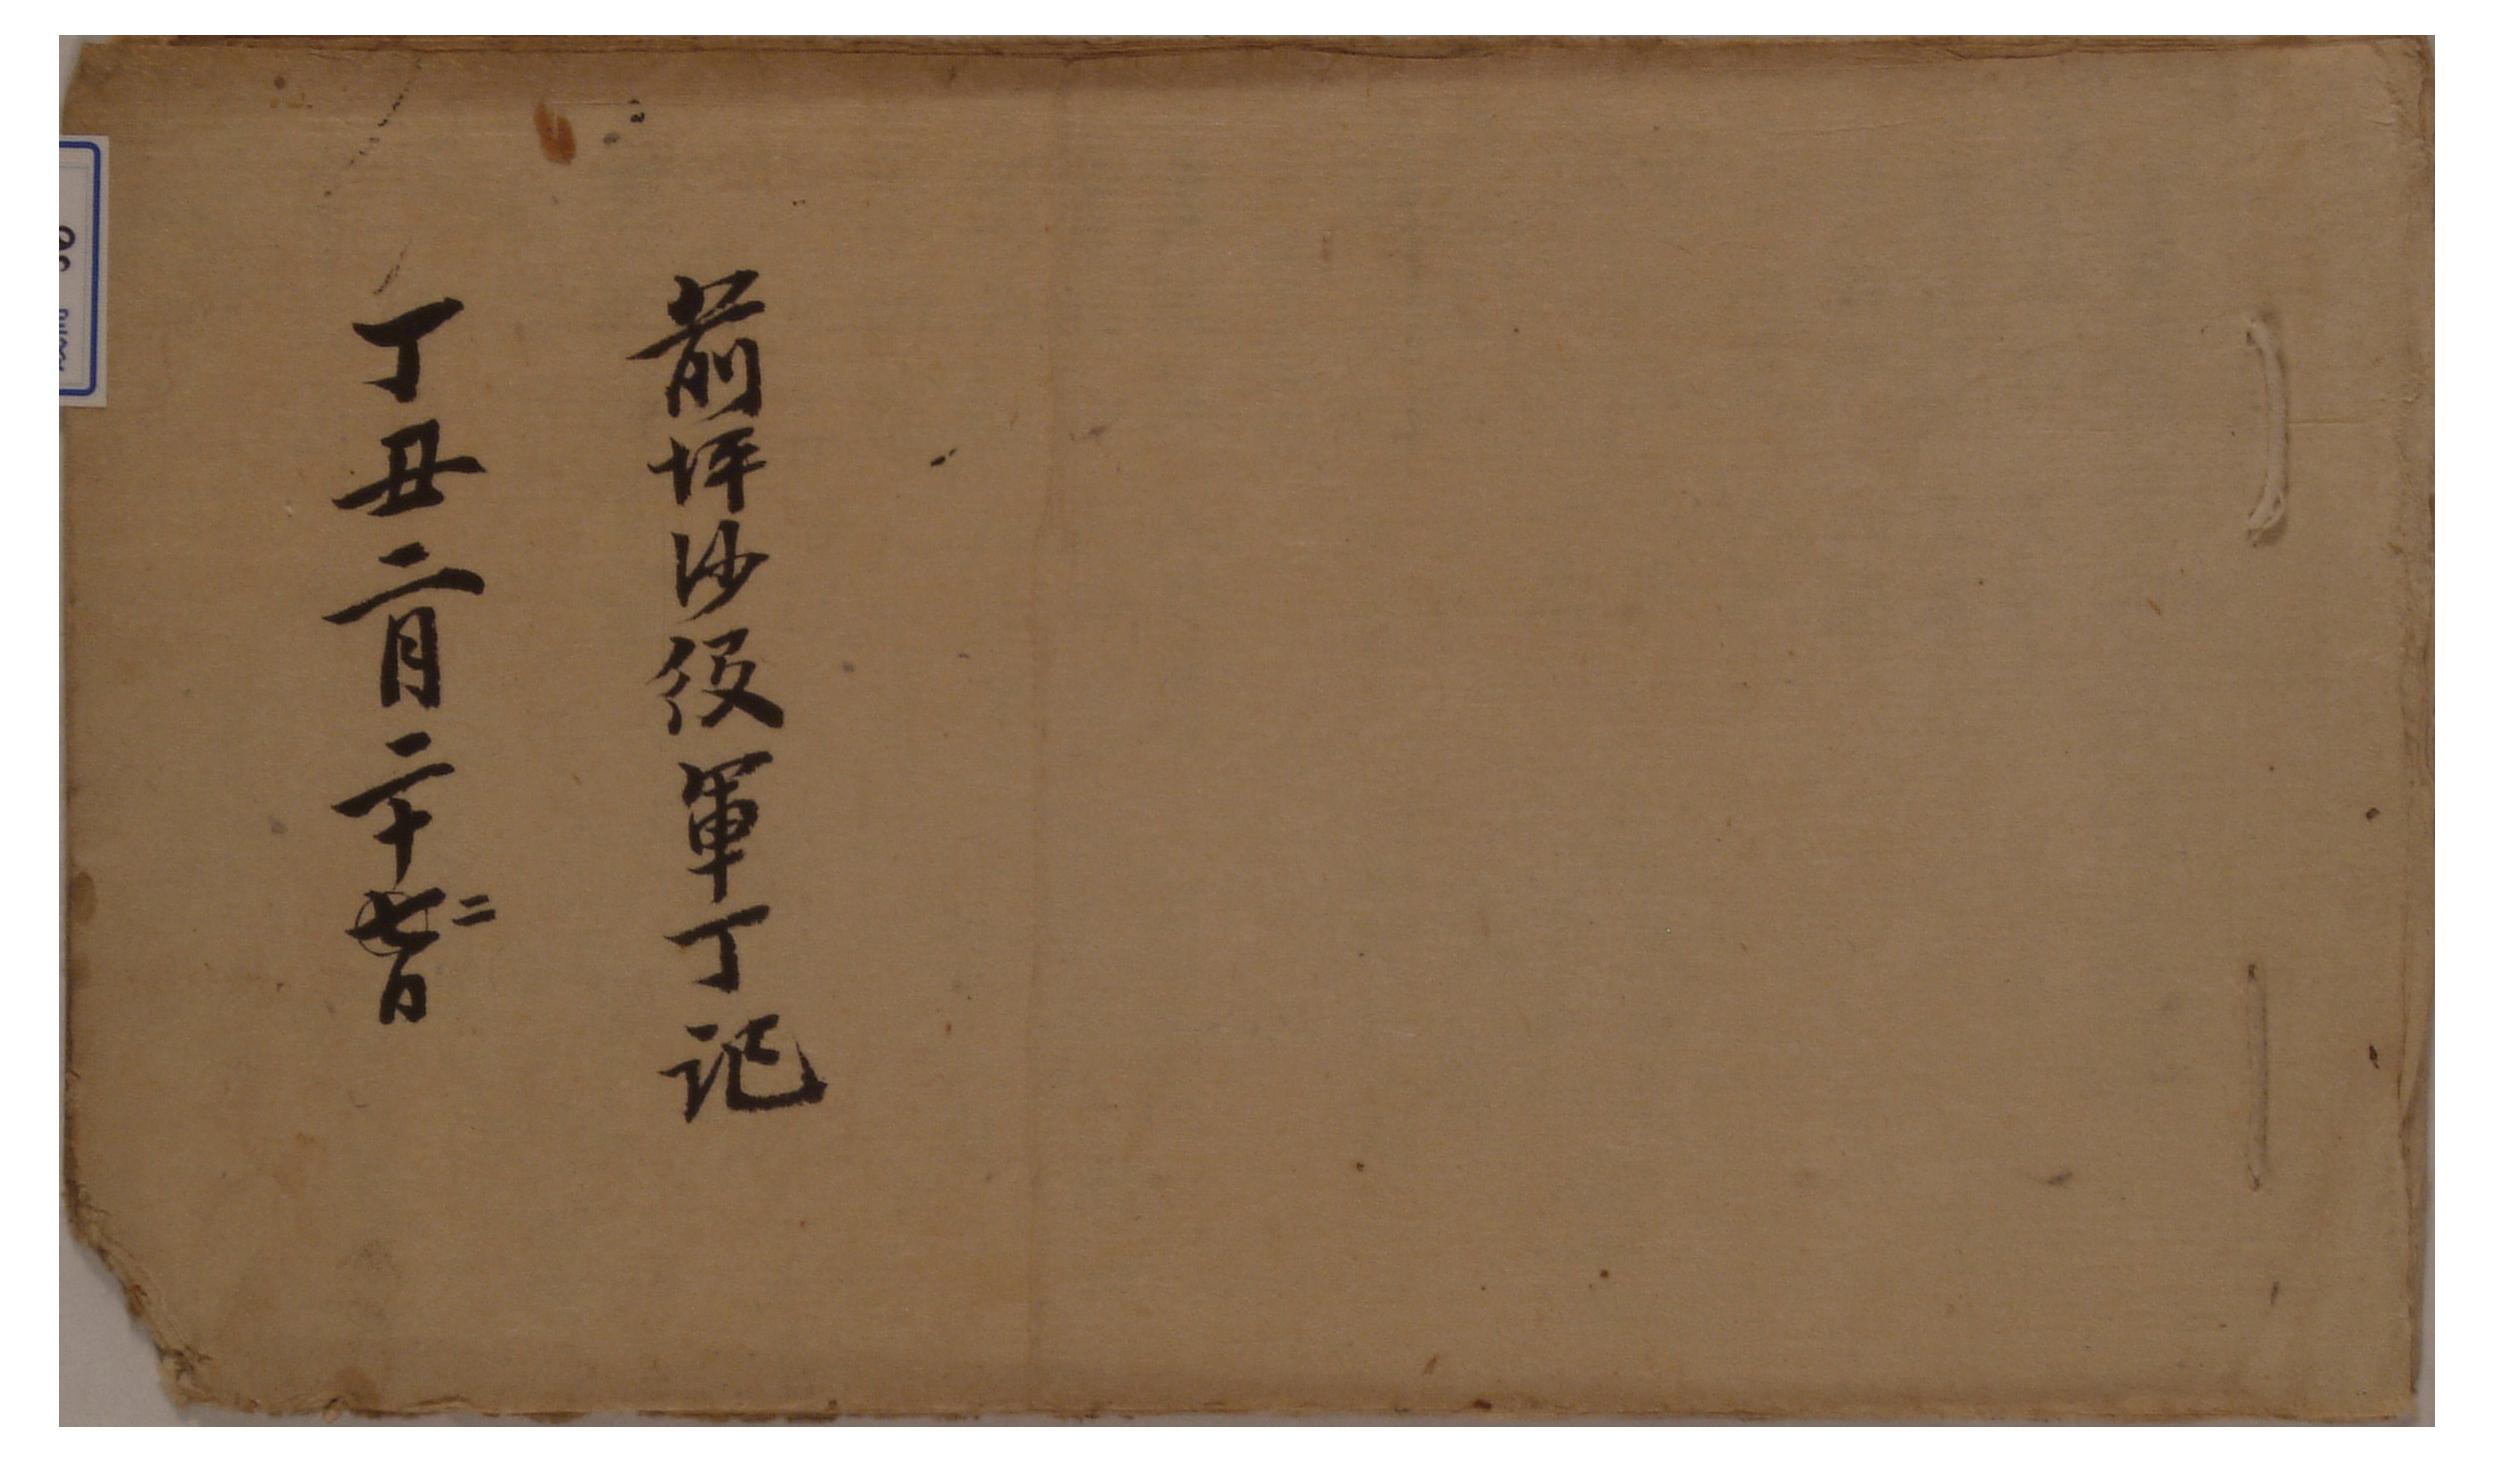 前坪沙役軍丁記
丁丑二月二十七二日